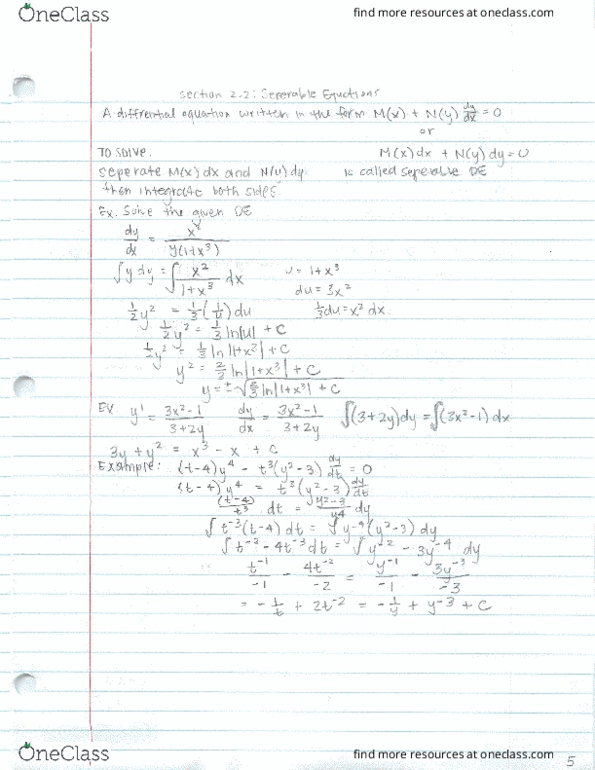 OneClass find more resources at oneclass.com
section 2.2: Seperable Equations
A diffrential equation written in the form M(x) + N(y) dy/dx = 0
or
TO SOLVE. M(x)dx + N(y)dy = 0
seperate M(x)dx and N(y)dy is called seperable DE
then integrate both sides
Ex. Solve the given DE
dy/dx = x²/y(1+x³)
∫y dy = ∫ x²/1+x³ dx u = 1+x³
du = 3x²
½y² = ⅓(1/u)du ⅓du = x² dx
½y² = ⅓ ln|u| + C
½y² = ⅓ ln|1+x³| + C
y² = ⅔ ln|1+x³| + C
y = ±√⅔ ln|1+x³| + C
EX y' = 3x²-1/3+2y dy/dx = 3x²-1/3+2y ∫(3+2y)dy = ∫(3x²-1)dx
3y + y² = x³ - x + C
Example: (t-4)y⁴ - t³(y²-3) dy/dt = 0
(t-4)y⁴ = t³(y²-3) dy/dt
(t-4)/t³ dt = y²-3/y⁴ dy
∫t⁻³(t-4)dt = ∫y⁻⁴(y²-3)dy
∫t⁻² - 4t⁻³dt = ∫y⁻² - 3y⁻⁴ dy
t⁻¹/-1 - 4t⁻²/-2 = y⁻¹/-1 - 3y⁻³/-3
= -1/t + 2t⁻² = -1/y + y⁻³ + C
OneClass find more resources at oneclass.com
5